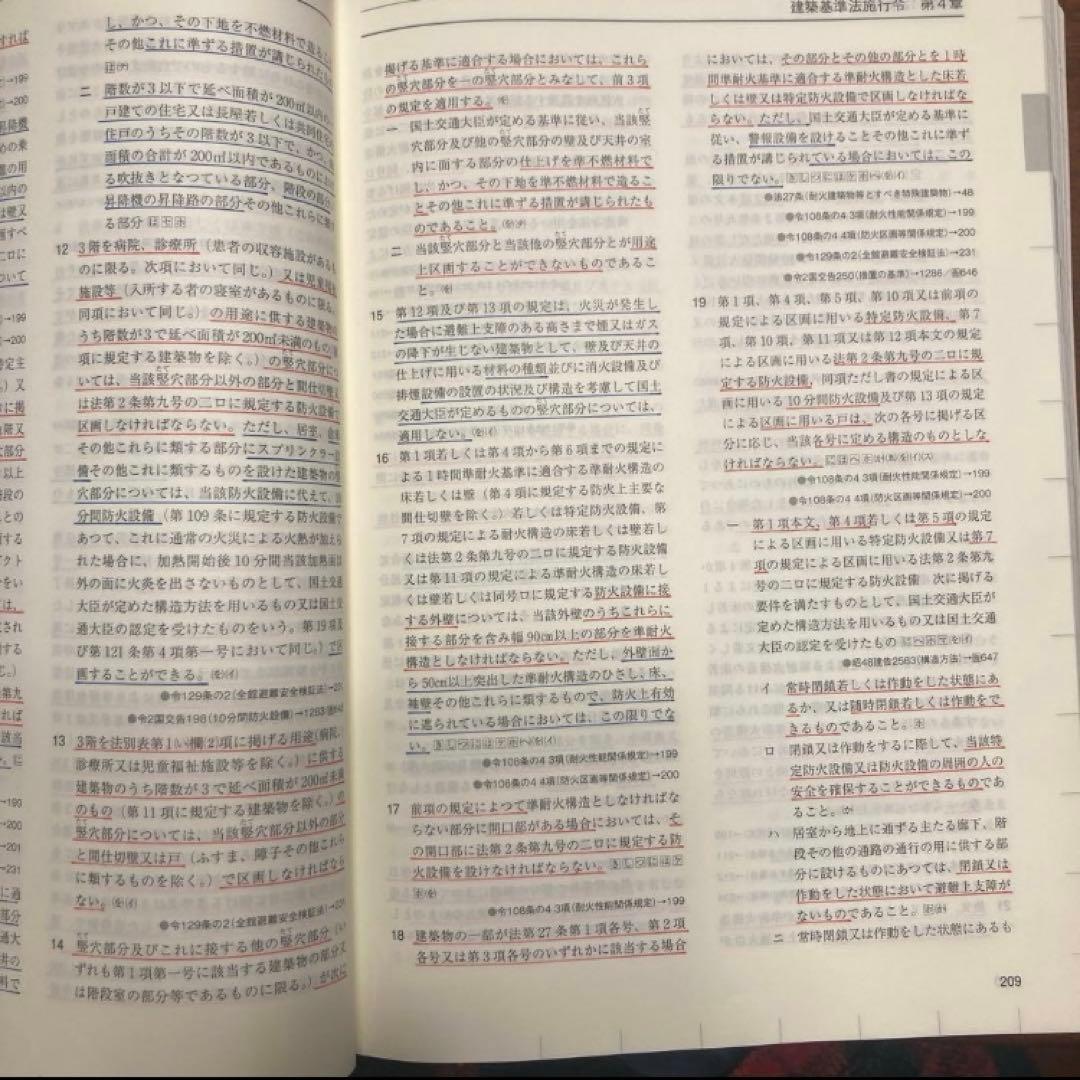 すれば
→199
→200
し、かつ、その下地を不燃材料で造る
その他これに準ずる措置が講じられた
ニ 階数が3以下で延べ面積が200㎡以内の
戸建ての住宅又は長屋若しくは共同住宅の
住戸のうちその階数が3以下で、かつ、
面積の合計が200㎡以内であるものにおけ
る吹抜きとなつている部分、階段の部分
昇降機の昇降路の部分その他これらに類す
る部分
12 3階を病院、診療所（患者の収容施設があるも
のに限る。次項において同じ。）又は児童福祉
施設等（入所する者の寝室があるものに限る。
同項において同じ。）の用途に供する建築物の
うち階数が3で延べ面積が200㎡未満のもの
項に規定する建築物を除く。）の竪穴部分につ
いては、当該竪穴部分以外の部分と間仕切壁又
は法第2条第九号の二ロに規定する防火設備で
区画しなければならない。ただし、居室、倉庫
その他これらに類する部分にスプリンクラー設
備その他これに類するものを設けた建築物の竪
穴部分については、当該防火設備に代えて、10
分間防火設備（第109条に規定する防火設備で
あつて、これに通常の火災による火熱が加えら
れた場合に、加熱開始後10分間当該加熱面以
外の面に火炎を出さないものとして、国土交通
大臣が定めた構造方法を用いるもの又は国土交
通大臣の認定を受けたものをいう。第19項及
び第121条第4項第一号において同じ。）で区
画することができる。
●令129条の2（全館避難安全検証法）→231
●令2国交告198（10分間防火設備）→1283
13 3階を法別表第1(い)欄(2)項に掲げる用途（病院、
診療所又は児童福祉施設等を除く。）に供する
建築物のうち階数が3で延べ面積が200㎡未満
のもの（第11項に規定する建築物を除く。）の
竪穴部分については、当該竪穴部分以外の部分
と間仕切壁又は戸（ふすま、障子その他これら
に類するものを除く。）で区画しなければなら
ない。
●令129条の2（全館避難安全検証法）→231
14 竪穴部分及びこれに接する他の竪穴部分（い
ずれも第1項第一号に該当する建築物の部分又
は階段室の部分等であるものに限る。）が次に
建築基準法施行令 第4章
掲げる基準に適合する場合においては、これら
の竪穴部分を一の竪穴部分とみなして、前3項
の規定を適用する。
一 国土交通大臣が定める基準に従い、当該竪
穴部分及び他の竪穴部分の壁及び天井の室
内に面する部分の仕上げを準不燃材料で
し、かつ、その下地を準不燃材料で造るこ
とその他これに準ずる措置が講じられたも
のであること。
二 当該竪穴部分と当該他の竪穴部分とが用途
上区画することができないものであるこ
と。
15 第12項及び第13項の規定は、火災が発生し
た場合に避難上支障のある高さまで煙又はガス
の降下が生じない建築物として、壁及び天井の
仕上げに用いる材料の種類並びに消火設備及び
排煙設備の設置の状況及び構造を考慮して国土
交通大臣が定めるものの竪穴部分については、
適用しない。
16 第1項若しくは第4項から第6項までの規定に
よる1時間準耐火基準に適合する準耐火構造の
床若しくは壁（第4項に規定する防火上主要な
間仕切壁を除く。）若しくは特定防火設備、第
7項の規定による耐火構造の床若しくは壁若し
くは法第2条第九号の二ロに規定する防火設備
又は第11項の規定による準耐火構造の床若し
くは壁若しくは同号ロに規定する防火設備に接
する外壁については、当該外壁のうちこれらに
接する部分を含み幅90cm以上の部分を準耐火
構造としなければならない。ただし、外壁面か
ら50cm以上突出した準耐火構造のひさし、床、
袖壁その他これらに類するもので、防火上有効
に遮られている場合においては、この限りでな
い。
●令108条の4 3項（耐火性能関係規定）→199
●令108条の4 4項（防火区画等関係規定）→200
17 前項の規定によつて準耐火構造としなければな
らない部分に開口部がある場合においては、そ
の開口部に法第2条第九号の二ロに規定する防
火設備を設けなければならない。
●令108条の4 3項（耐火性能関係規定）→199
18 建築物の一部が法第27条第1項各号、第2項
各号又は第3項各号のいずれかに該当する場合
においては、その部分とその他の部分とを1時
間準耐火基準に適合する準耐火構造とした床若
しくは壁又は特定防火設備で区画しなければな
らない。ただし、国土交通大臣が定める基準に
従い、警報設備を設けることその他これに準ず
る措置が講じられている場合においては、この
限りでない。
●第27条（耐火建築物等とすべき特殊建築物）→48
●令108条の4 3項（耐火性能関係規定）→199
●令108条の4 4項（防火区画等関係規定）→200
●令129条の2（全館避難安全検証法）→231
●令2国交告250（措置の基準）→1286／画646
19 第1項、第4項、第5項、第10項又は前項の
規定による区画に用いる特定防火設備、第7
項、第10項、第11項又は第12項本文の規定
による区画に用いる法第2条第九号の二ロに規
定する防火設備、同項ただし書の規定による区
画に用いる10分間防火設備及び第13項の規定
による区画に用いる戸は、次の各号に掲げる区
分に応じ、当該各号に定める構造のものとしな
ければならない。
●令108条の4 3項（耐火性能関係規定）→199
●令108条の4 4項（防火区画等関係規定）→200
一 第1項本文、第4項若しくは第5項の規定
による区画に用いる特定防火設備又は第7
項の規定による区画に用いる法第2条第九
号の二ロに規定する防火設備 次に掲げる
要件を満たすものとして、国土交通大臣が
定めた構造方法を用いるもの又は国土交通
大臣の認定を受けたもの
●昭48建告2563（構造方法）→画647
イ 常時閉鎖若しくは作動をした状態にあ
るか、又は随時閉鎖若しくは作動をで
きるものであること。
ロ 閉鎖又は作動をするに際して、当該特
定防火設備又は防火設備の周囲の人の
安全を確保することができるものであ
ること。
ハ 居室から地上に通ずる主たる廊下、階
段その他の通路の通行の用に供する部
分に設けるものにあつては、閉鎖又は
作動をした状態において避難上支障が
ないものであること。
ニ 常時閉鎖又は作動をした状態にあるも
209